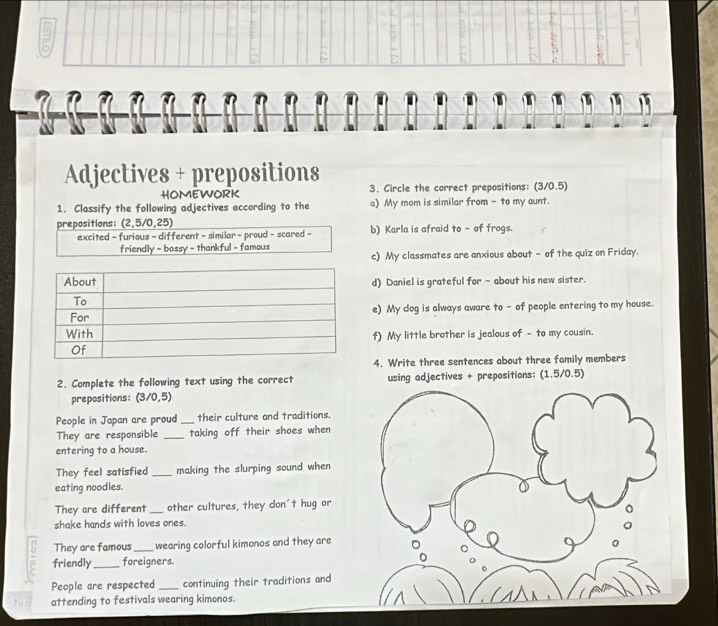 ESTILO
Adjectives + prepositions
HOMEWORK
1. Classify the following adjectives according to the
prepositions: (2,5/0,25)
excited - furious - different - similar - proud - scared -
friendly - bossy - thankful - famous
About
To
For
With
Of
2. Complete the following text using the correct
prepositions: (3/0,5)
People in Japan are proud ___ their culture and traditions.
They are responsible ____ taking off their shoes when
entering to a house.
They feel satisfied ____ making the slurping sound when
eating noodles.
They are different ___ other cultures, they don´t hug or
shake hands with loves ones.
They are famous ____ wearing colorful kimonos and they are
friendly _____ foreigners.
People are respected ____ continuing their traditions and
attending to festivals wearing kimonos.
3. Circle the correct prepositions: (3/0.5)
a) My mom is similar from - to my aunt.
b) Karla is afraid to - of frogs.
c) My classmates are anxious about - of the quiz on Friday.
d) Daniel is grateful for - about his new sister.
e) My dog is always aware to - of people entering to my house.
f) My little brother is jealous of - to my cousin.
4. Write three sentences about three family members
using adjectives + prepositions: (1.5/0.5)